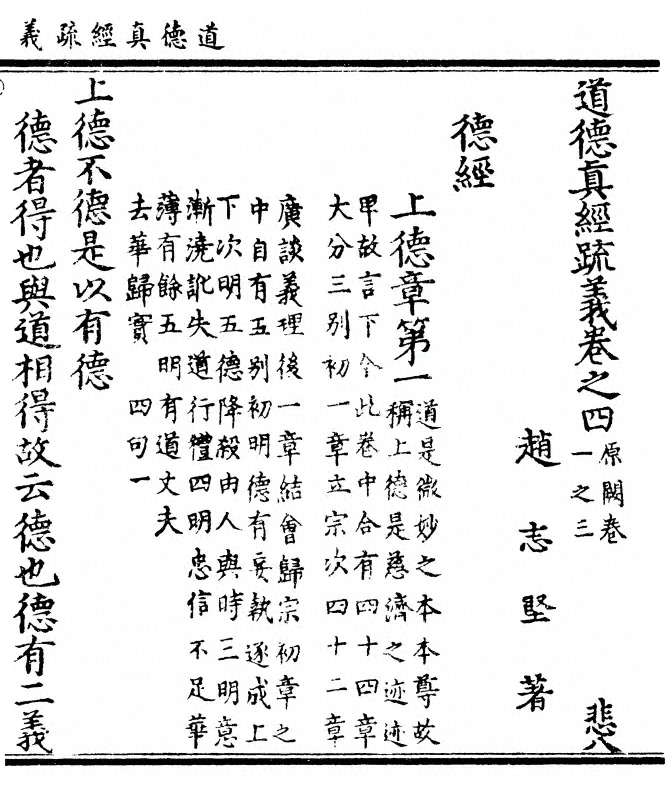 道德真經疏義
道德真經疏義卷之四
原闕卷
一之三
悲八
趙志堅著
德經
上德章第一
道是微妙之本本尊故
稱上德是慈濟之迹迹
卑故言下今此卷中合有四十四章
大分三别初一章立宗次四十二章
廣談義理後一章結會歸宗初章之
中自有五别初明德有妄執遂成上
下次明五德降殺由人與時三明意
漸澆訛失道行禮四明忠信不足華
薄有餘五明有道丈夫
去華歸實 四句一
上德不德是以有德
德者得也與道相得故云德也德有二義